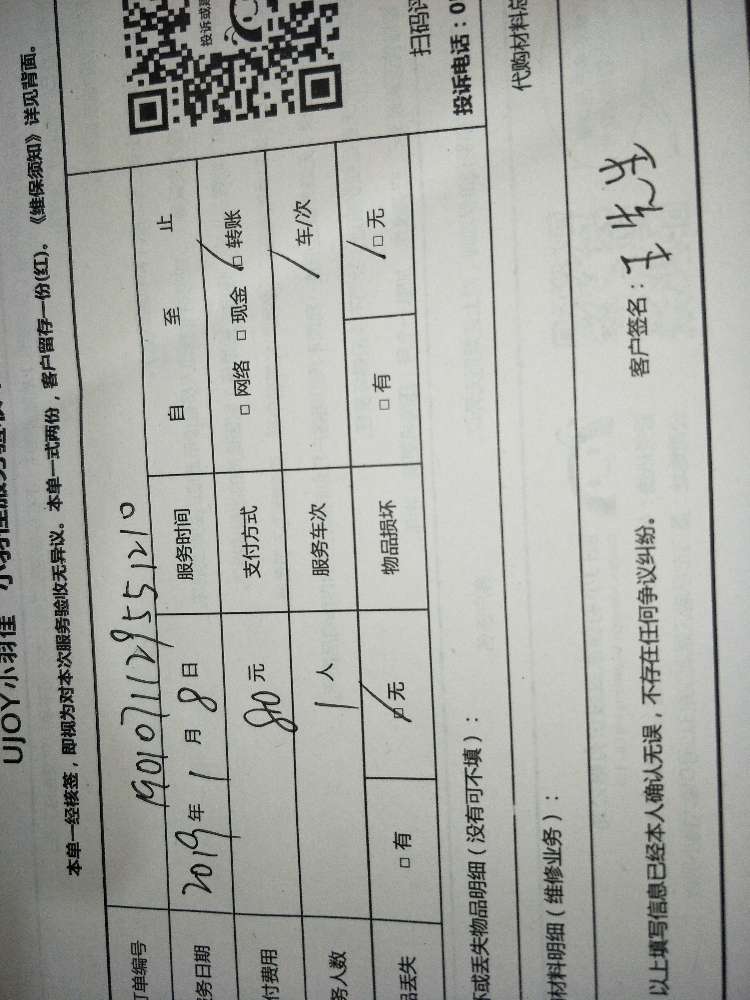 UJOY小羽佳 小羽佳服务验收
本单一经核签，即视为对本次服务验收无异议。本单一式两份，客户留存一份(红)。《维保须知》详见背面。
投诉或建
订单编号 1901071129551210
服务日期 2019年1月8日 服务时间 自 至 止
付费用 80元 支付方式 □网络 □现金 □转账
务人数 1人 服务车次 / 车/次
品丢失 □有 □无 物品损坏 □有 □无
扫码评
投诉电话：0
坏或丢失物品明细（没有可不填）：
代购材料总
材料明细（维修业务）：
以上填写信息已经本人确认无误，不存在任何争议纠纷。 客户签名：王先生